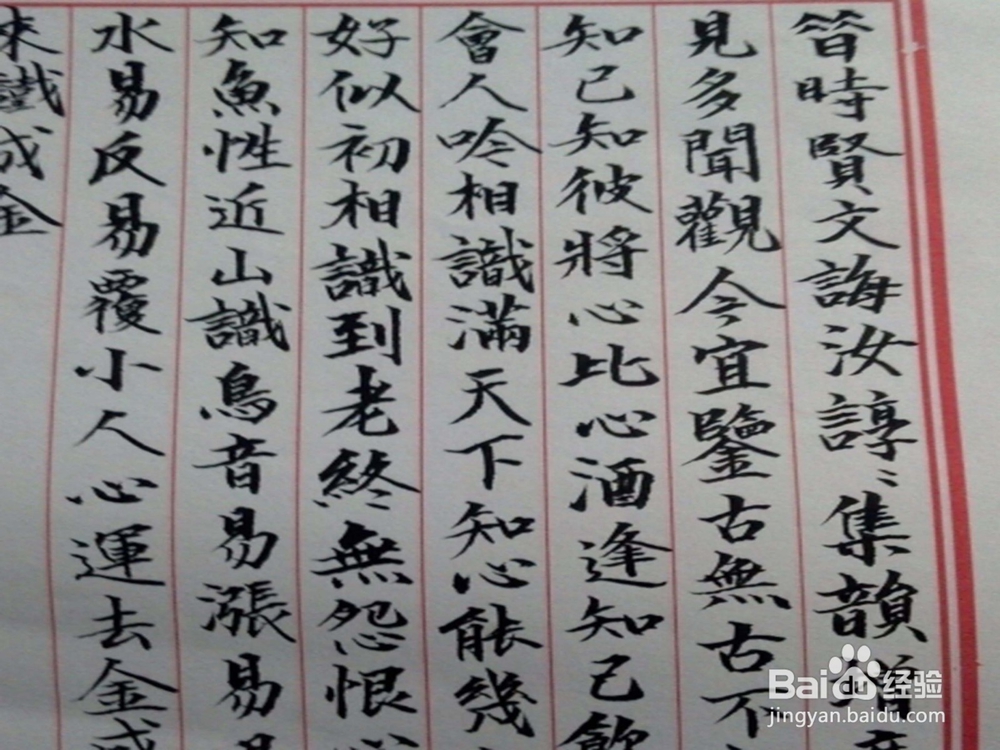 昔時賢文誨汝諄〻集韻增
見多聞觀今宜鑒古無古不
知己知彼將心比心酒逢知己飲
會人吟相識滿天下知心能幾
好似初相識到老終無怨恨心
知魚性近山識鳥音易漲易
水易反易覆小人心運去金成
來鐵成金
Bai du 经验
jingyan.baidu.com